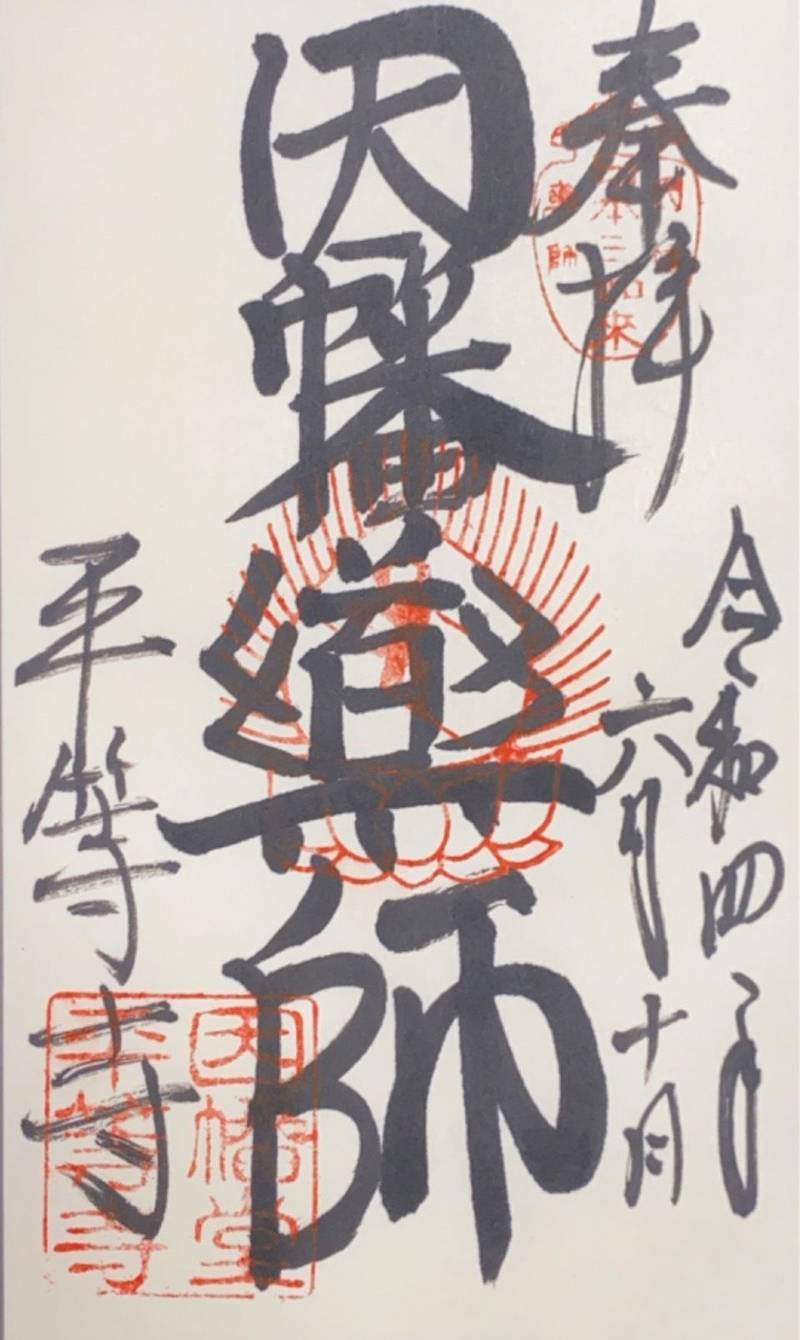 奉拝
令和四年
六月十日
因幡薬師
平等寺
日本三如来
薬師
因幡堂
平等寺